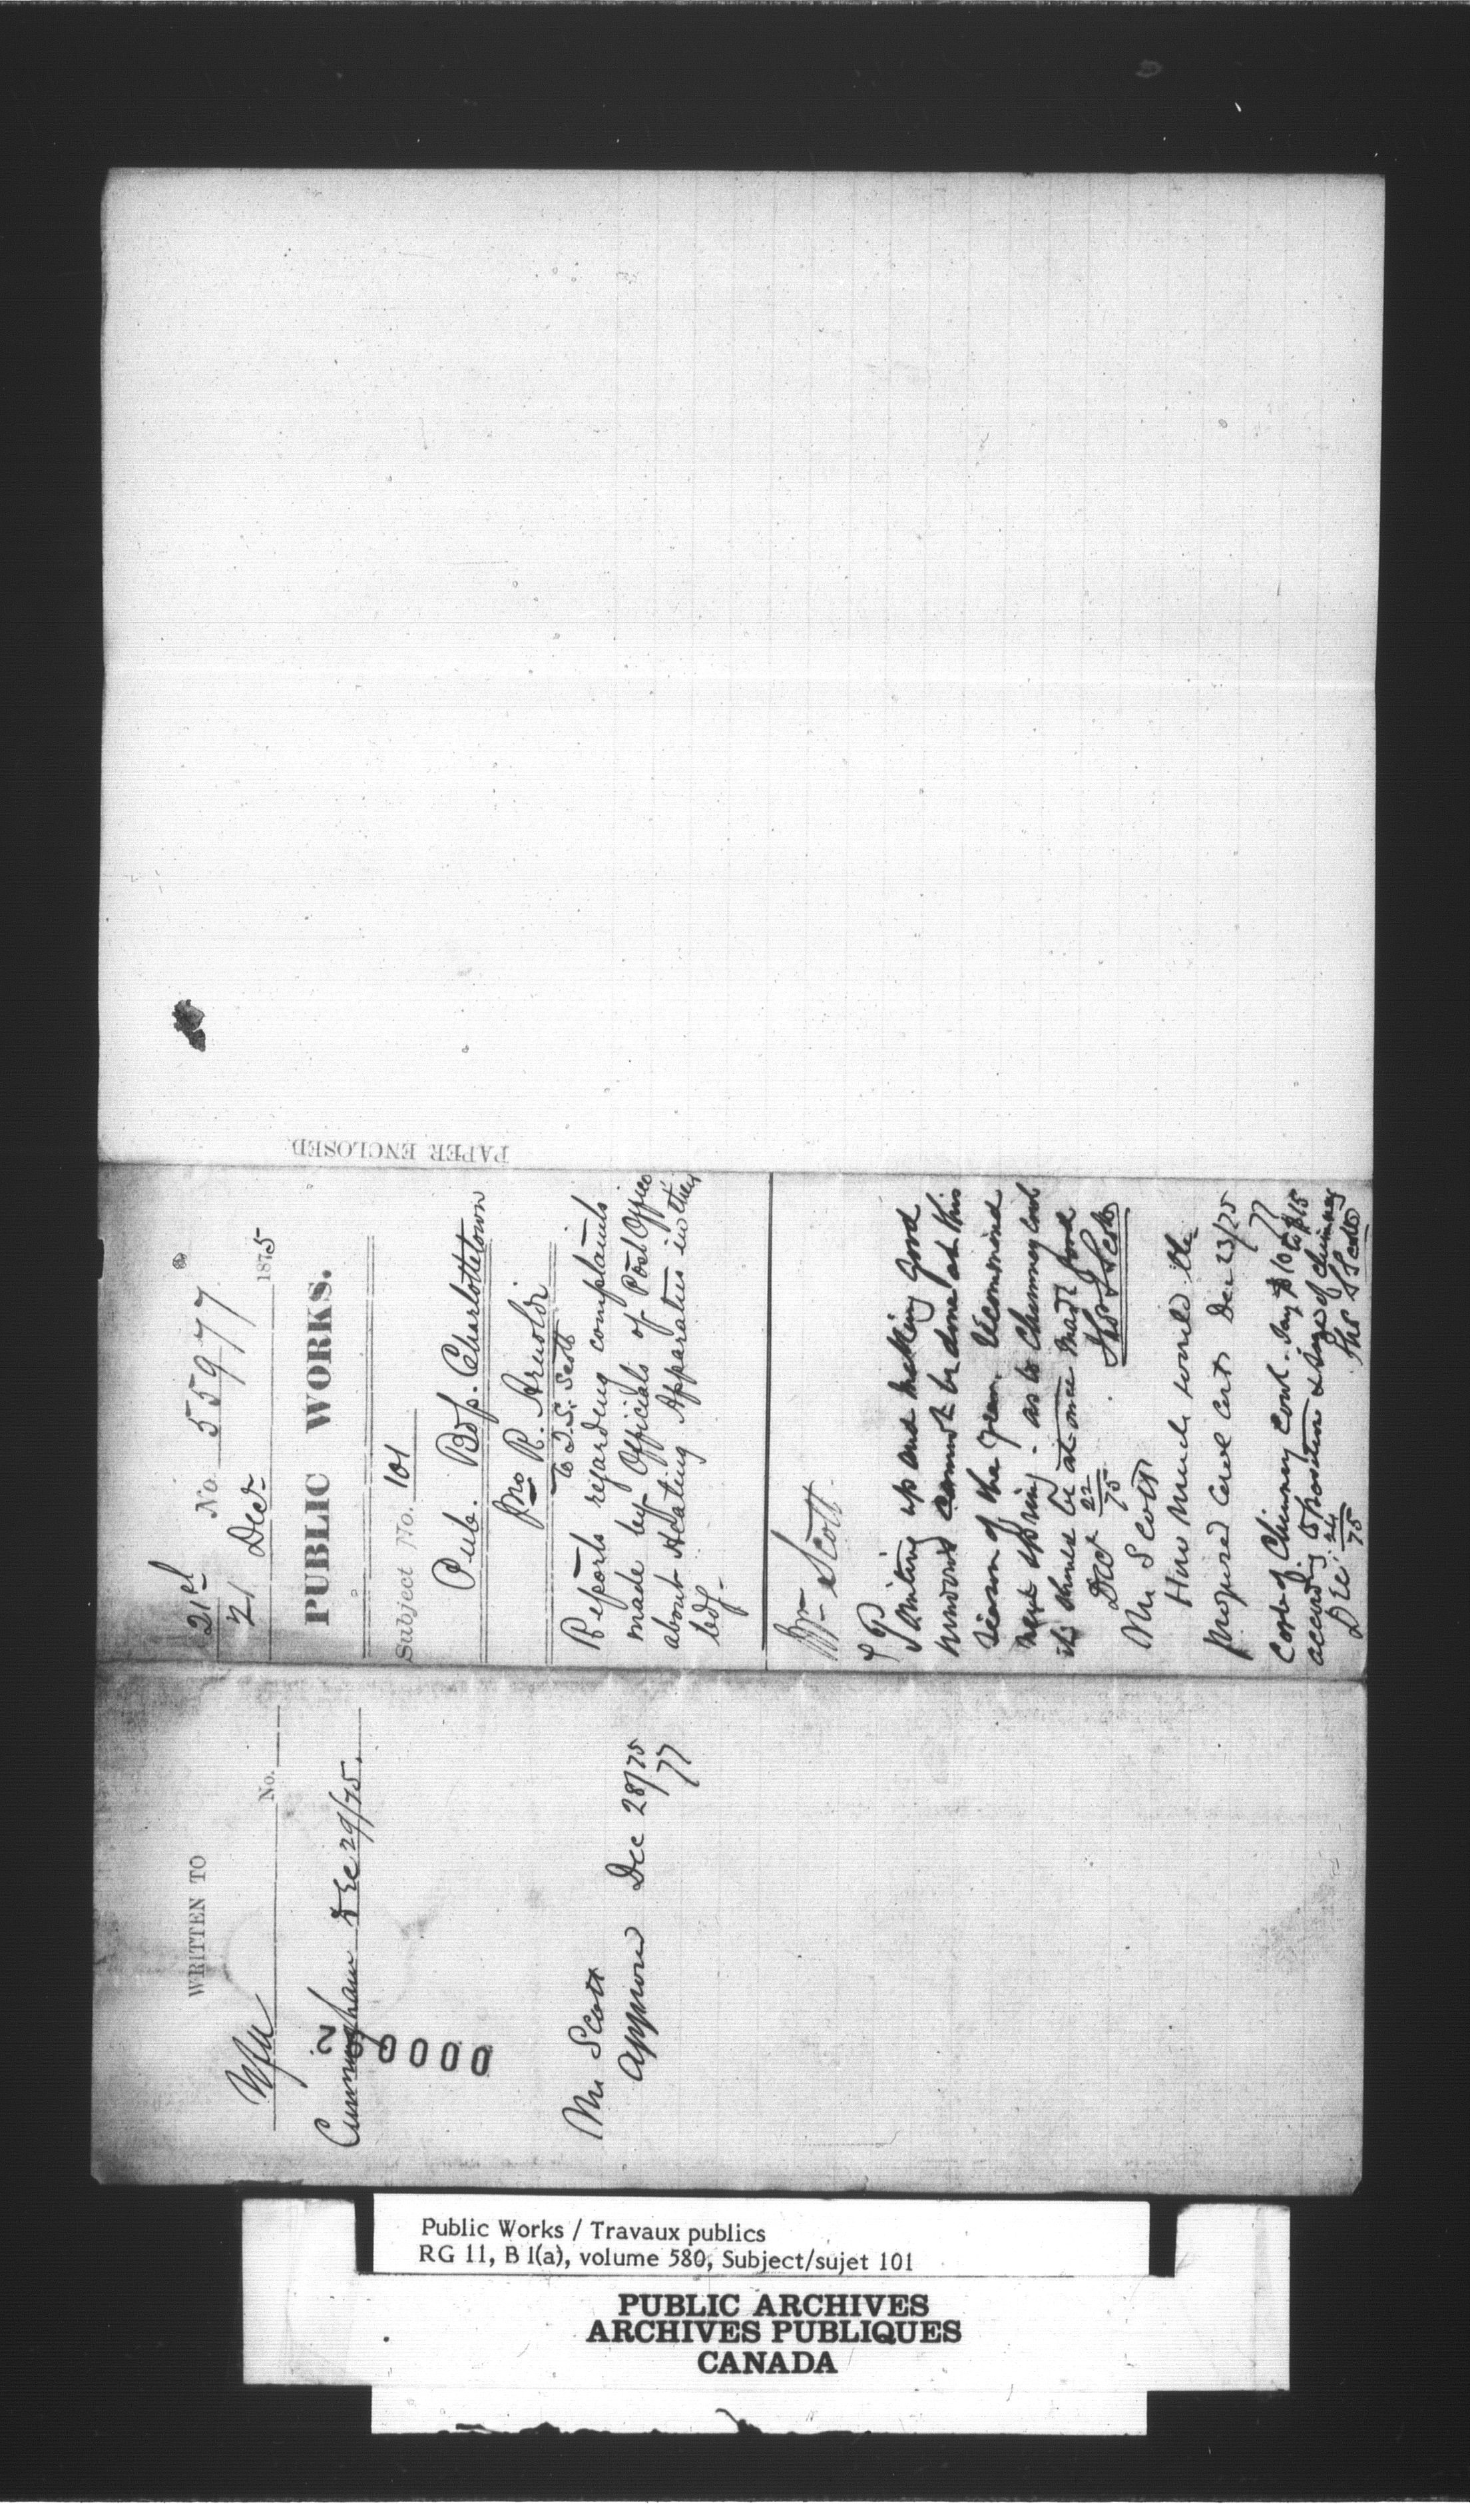 PAPER ENCLOSED
21st No. 55977
21 Decr 1875
PUBLIC WORKS.
Subject No. 101
Pub. Bdgs. Charlottetown
R. Arnoldi
to T. S. Scott
Reports regarding complaints
made by Officials of Post Office
about Heating Apparatus in their
bdg-
Mr Scott
Painting up and making good
cannot be done at this
season of the year. Recommend
next spring. as to Chimney cowl
it should be at once made good
Decr 22/75 Thos S Scott
Mr Scott
How much would the
proposed cowl cost Dec 23/75
Cost of Chimney cowl. say $10 to $15
according to position & size of chimney
Dec: 24/75 Thos S Scott
WRITTEN TO
No.
Cunningham Dec 29/75.
Mr Scott
Approved Dec 28/75
Public Works / Travaux publics
RG 11, B 1(a), volume 580, Subject/sujet 101
PUBLIC ARCHIVES
ARCHIVES PUBLIQUES
CANADA